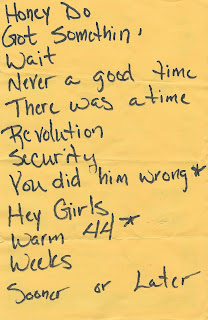 Honey Do
Got Somethin'
Wait
Never a good time
There was a time
Revolution
Security
You did him wrong*
Hey Girls
Warm 44*
Weeks
Sooner or Later